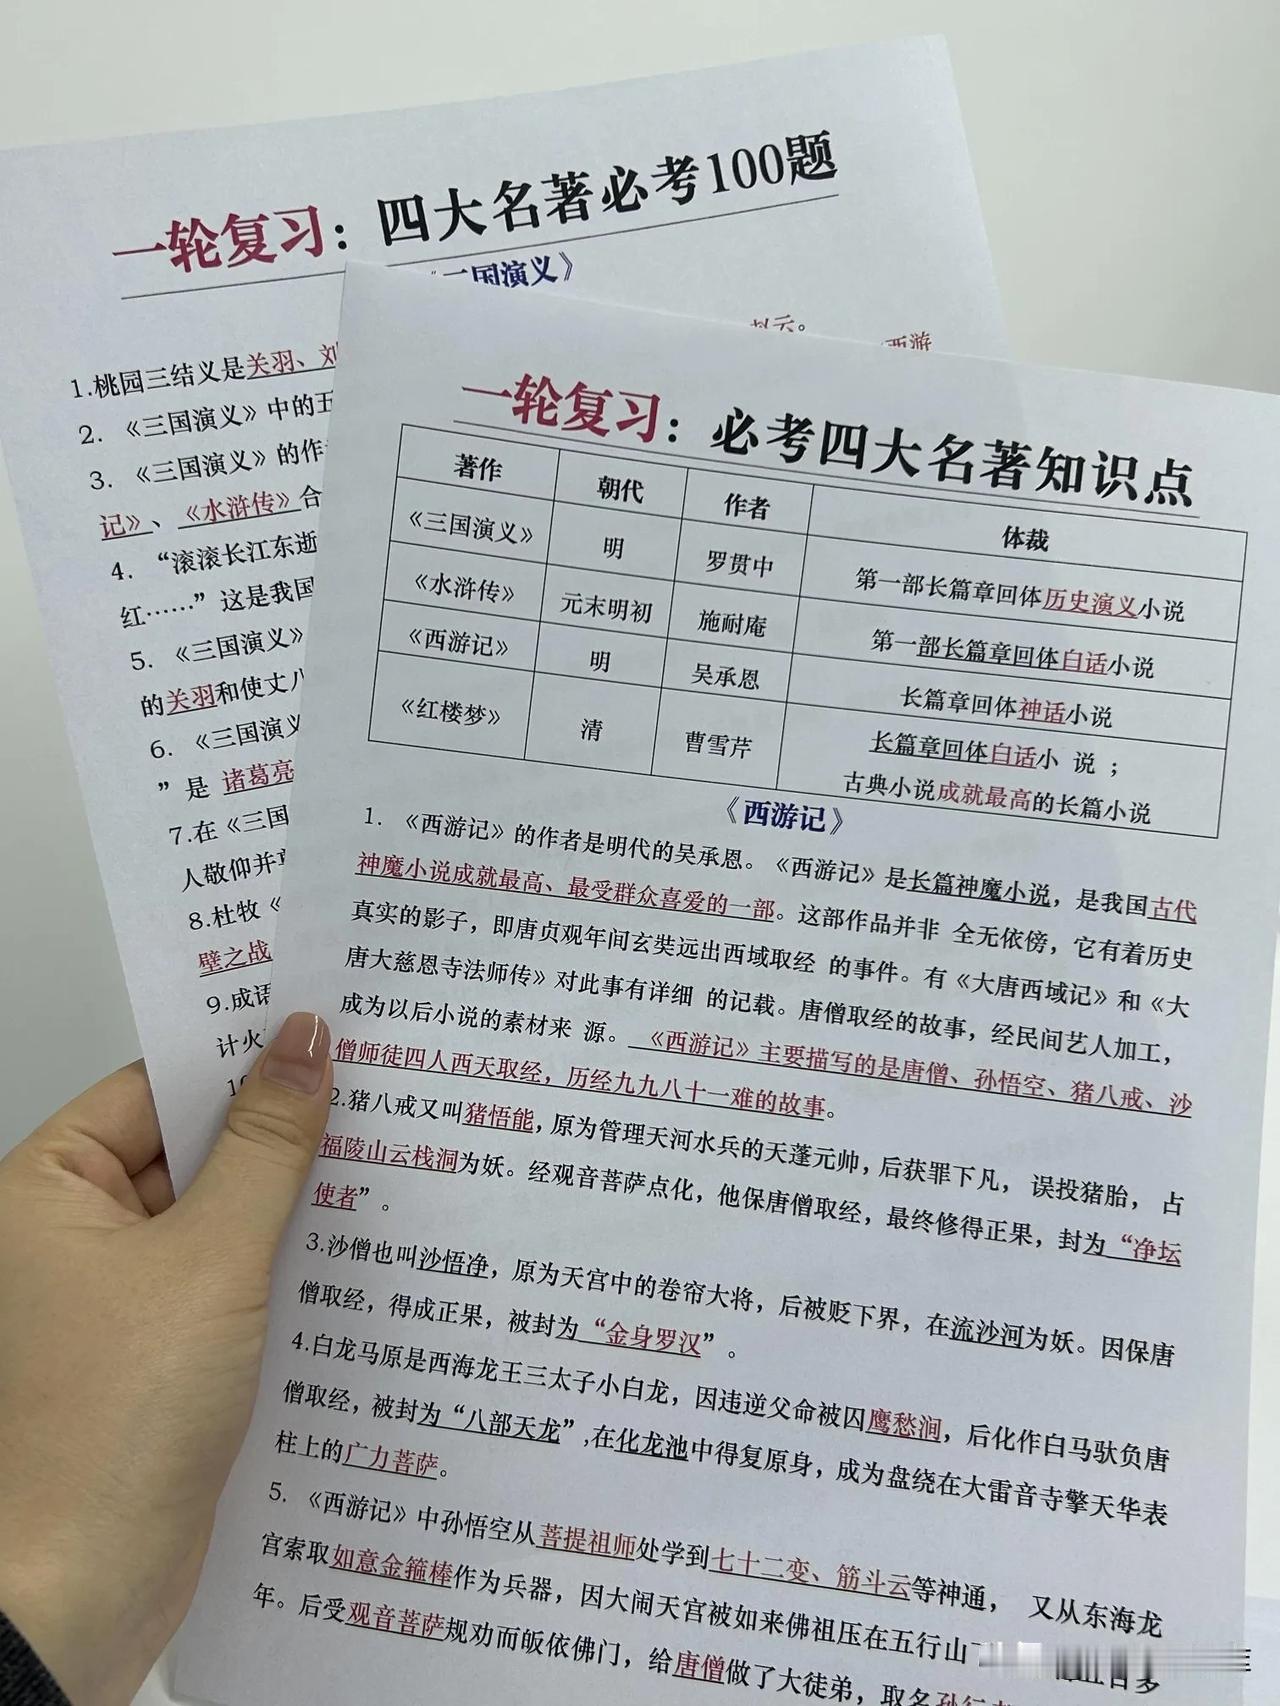 一轮复习：四大名著必考100题
国演义》
1.桃园三结义是关羽、刘
2. 《三国演义》中的五
3. 《三国演义》的作
西游
记》、《水浒传》合
4. “滚滚长江东逝
红……”这是我国
5. 《三国演义》
的关羽和使丈八
6. 《三国演义
”是 诸葛亮
7.在《三国
人敬仰并
8.杜牧《
壁之战
9.成语
计火
一轮复习：必考四大名著知识点
著作 朝代 作者 体裁
《三国演义》 明 罗贯中 第一部长篇章回体历史演义小说
《水浒传》 元末明初 施耐庵 第一部长篇章回体白话小说
《西游记》 明 吴承恩 长篇章回体神话小说
《红楼梦》 清 曹雪芹 长篇章回体白话小 说 ；
古典小说成就最高的长篇小说
《西游记》
1. 《西游记》的作者是明代的吴承恩。《西游记》是长篇神魔小说，是我国古代
神魔小说成就最高、最受群众喜爱的一部。这部作品并非 全无依傍，它有着历史
真实的影子，即唐贞观年间玄奘远出西域取经 的事件。有《大唐西域记》和《大
唐大慈恩寺法师传》对此事有详细 的记载。唐僧取经的故事，经民间艺人加工，
成为以后小说的素材来 源。《西游记》主要描写的是唐僧、孙悟空、猪八戒、沙
僧师徒四人西天取经，历经九九八十一难的故事。
2.猪八戒又叫猪悟能，原为管理天河水兵的天蓬元帅，后获罪下凡， 误投猪胎， 占
福陵山云栈洞为妖。经观音菩萨点化，他保唐僧取经，最终修得正果，封为“净坛
使者”。
3.沙僧也叫沙悟净，原为天宫中的卷帘大将，后被贬下界，在流沙河为妖。因保唐
僧取经，得成正果，被封为“金身罗汉”。
4.白龙马原是西海龙王三太子小白龙，因违逆父命被囚鹰愁涧，后化作白马驮负唐
僧取经，被封为“八部天龙”,在化龙池中得复原身，成为盘绕在大雷音寺擎天华表
柱上的广力菩萨。
5. 《西游记》中孙悟空从菩提祖师处学到七十二变、筋斗云等神通， 又从东海龙
宫索取如意金箍棒作为兵器，因大闹天宫被如来佛祖压在五行山
年。后受观音菩萨规劝而皈依佛门，给唐僧做了大徒弟，取名孙行